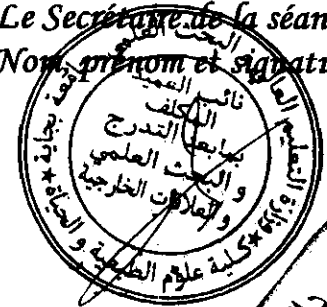 Le Secrétaire de la séan
Nom, prénom et signatu
نائب العميد
المكلف
بما بعد التدرج
و البحث العلمي
و العلاقات الخارجية
وزارة التعليم العالي و البحث العلمي
كلية علوم الطبيعة و الحياة
جامعة بجاية